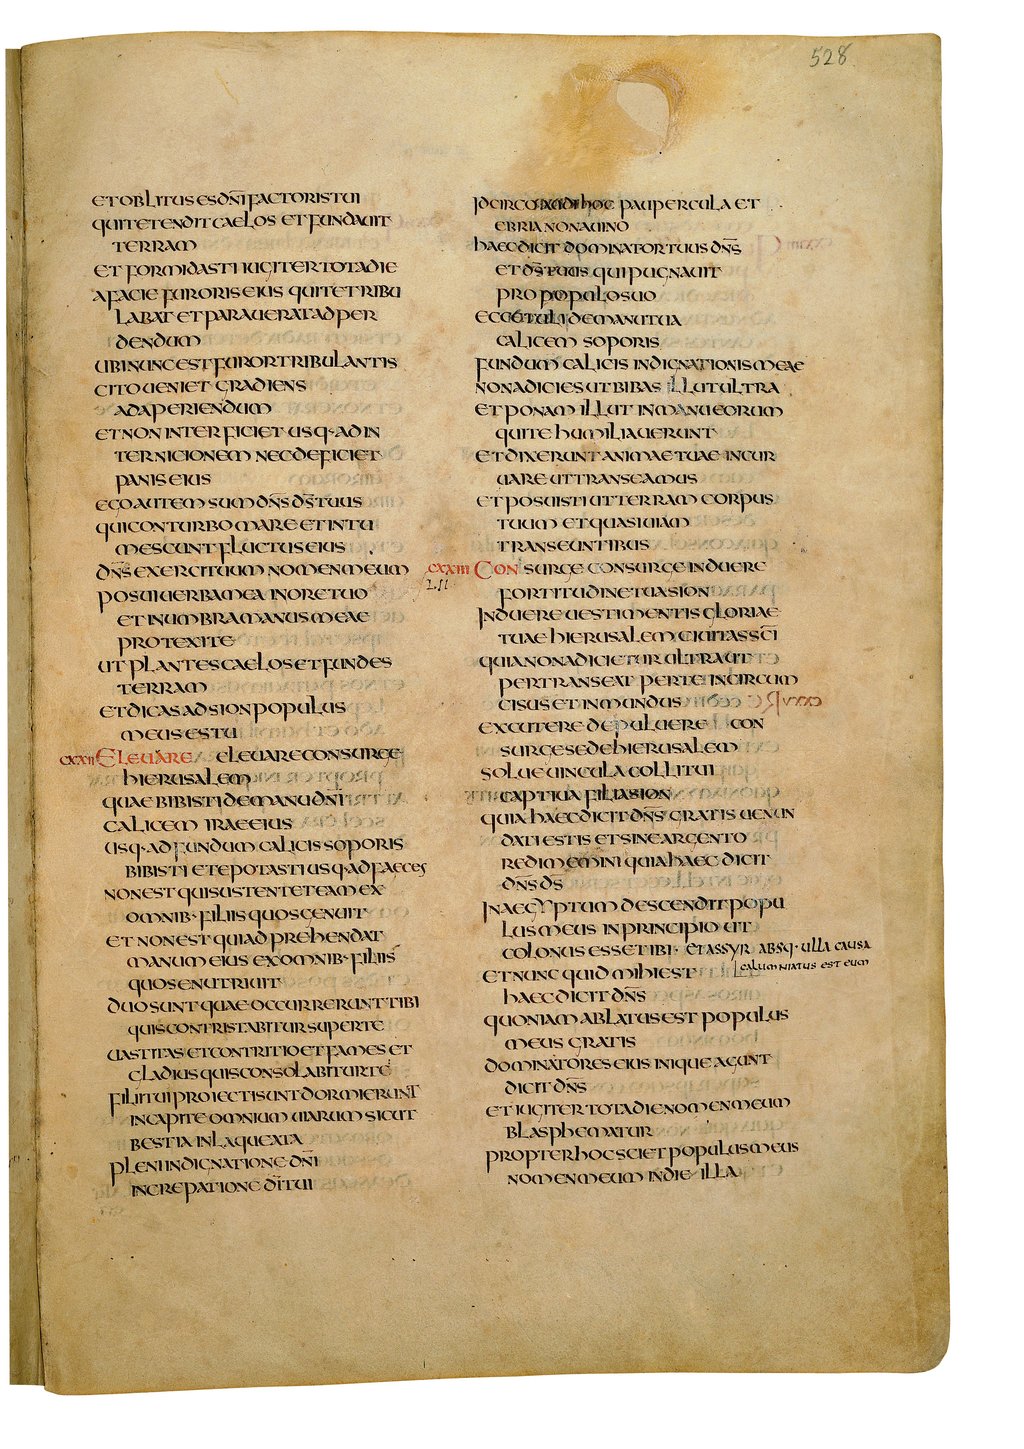 528
ET OBLITUS ES DN̄I FACTORIS TUI
QUI TETENDIT CAELOS ET FUNDAUIT
TERRAM
ET FORMIDASTI IUGITER TOTA DIE
A FACIE FURORIS EIUS QUI TE TRIBU
LABAT ET PARAUERAT AD PER
DENDUM
UBI NUNC EST FUROR TRIBULANTIS
CITO UENIET GRADIENS
AD APERIENDUM
ET NON INTERFICIET USQ· AD IN
TERNICIONEM NEC DEFICIET
PANIS EIUS
EGO AUTEM SUM DN̄S D̄S TUUS
QUI CONTURBO MARE ET INTU
MESCUNT FLUCTUS EIUS
DN̄S EXERCITUUM NOMEN MEUM
POSUI UERBA MEA IN ORE TUO
ET IN UMBRA MANUS MEAE
PROTEXI TE
UT PLANTES CAELOS ET FUNDES
TERRAM
ET DICAS AD SION POPULUS
MEUS ES TU
CXXII ELEUARE ELEUARE CONSURGE
HIERUSALEM
QUAE BIBISTI DE MANU DN̄I
CALICEM IRAE EIUS
USQ· AD FUNDUM CALICIS SOPORIS
BIBISTI ET EPOTASTI USQ· AD FAECES
NON EST QUI SUSTENTET EAM EX
OMNIB· FILIIS QUOS GENUIT
ET NON EST QUI ADPREHENDAT
MANUM EIUS EX OMNIB· FILIIS
QUOS ENUTRIUIT
DUO SUNT QUAE OCCURRERUNT TIBI
QUIS CONTRISTABITUR SUPER TE
UASTITAS ET CONTRITIO ET FAMES ET
GLADIUS QUIS CONSOLABITUR TE
FILII TUI PROIECTI SUNT DORMIERUNT
IN CAPITE OMNIUM UIARUM SICUT
BESTIA INLAQUEATA
PLENI INDIGNATIONE DN̄I
INCREPATIONE DĪ TUI
IDCIRCO AUDI HOC PAUPERCULA ET
EBRIA NON A UINO
HAEC DICIT DOMINATOR TUUS DN̄S
ET D̄S TUUS QUI PUGNAUIT
PRO POPULO SUO
ECCE TULI DE MANU TUA
CALICEM SOPORIS
FUNDUM CALICIS INDIGNATIONIS MEAE
NON ADICIES UT BIBAS ILLUT ULTRA
ET PONAM ILLUT IN MANU EORUM
QUI TE HUMILIAUERUNT
ET DIXERUNT ANIMAE TUAE INCUR
UARE UT TRANSEAMUS
ET POSUISTI UT TERRAM CORPUS
TUUM ET QUASI UIAM
TRANSEUNTIBUS
CXXIII CONSURGE CONSURGE INDUERE
FORTITUDINE TUA SION
INDUERE UESTIMENTIS GLORIAE
TUAE HIERUSALEM CIUITAS SC̄I
QUIA NON ADICIETUR ULTRA UT
PERTRANSEAT PER TE INCIRCUM
CISUS ET INMUNDUS
EXCUTERE DE PULUERE CON
SURGE SEDE HIERUSALEM
SOLUE UINCULA COLLI TUI
CAPTIUA FILIA SION
QUIA HAEC DICIT DN̄S GRATIS UENUN
DATI ESTIS ET SINE ARGENTO
REDIMEMINI QUIA HAEC DICIT
DN̄S D̄S
IN AEGYPTUM DESCENDIT POPU
LUS MEUS IN PRINCIPIO UT
COLONUS ESSET IBI· ET ASSYR ABSQ· ULLA CAUSA
CALUMNIATUS EST EUM
ET NUNC QUID MIHI EST
HAEC DICIT DN̄S
QUONIAM ABLATUS EST POPULUS
MEUS GRATIS
DOMINATORES EIUS INIQUE AGUNT
DICIT DN̄S
ET IUGITER TOTA DIE NOMEN MEUM
BLASPHEMATUR
PROPTER HOC SCIET POPULUS MEUS
NOMEN MEUM IN DIE ILLA